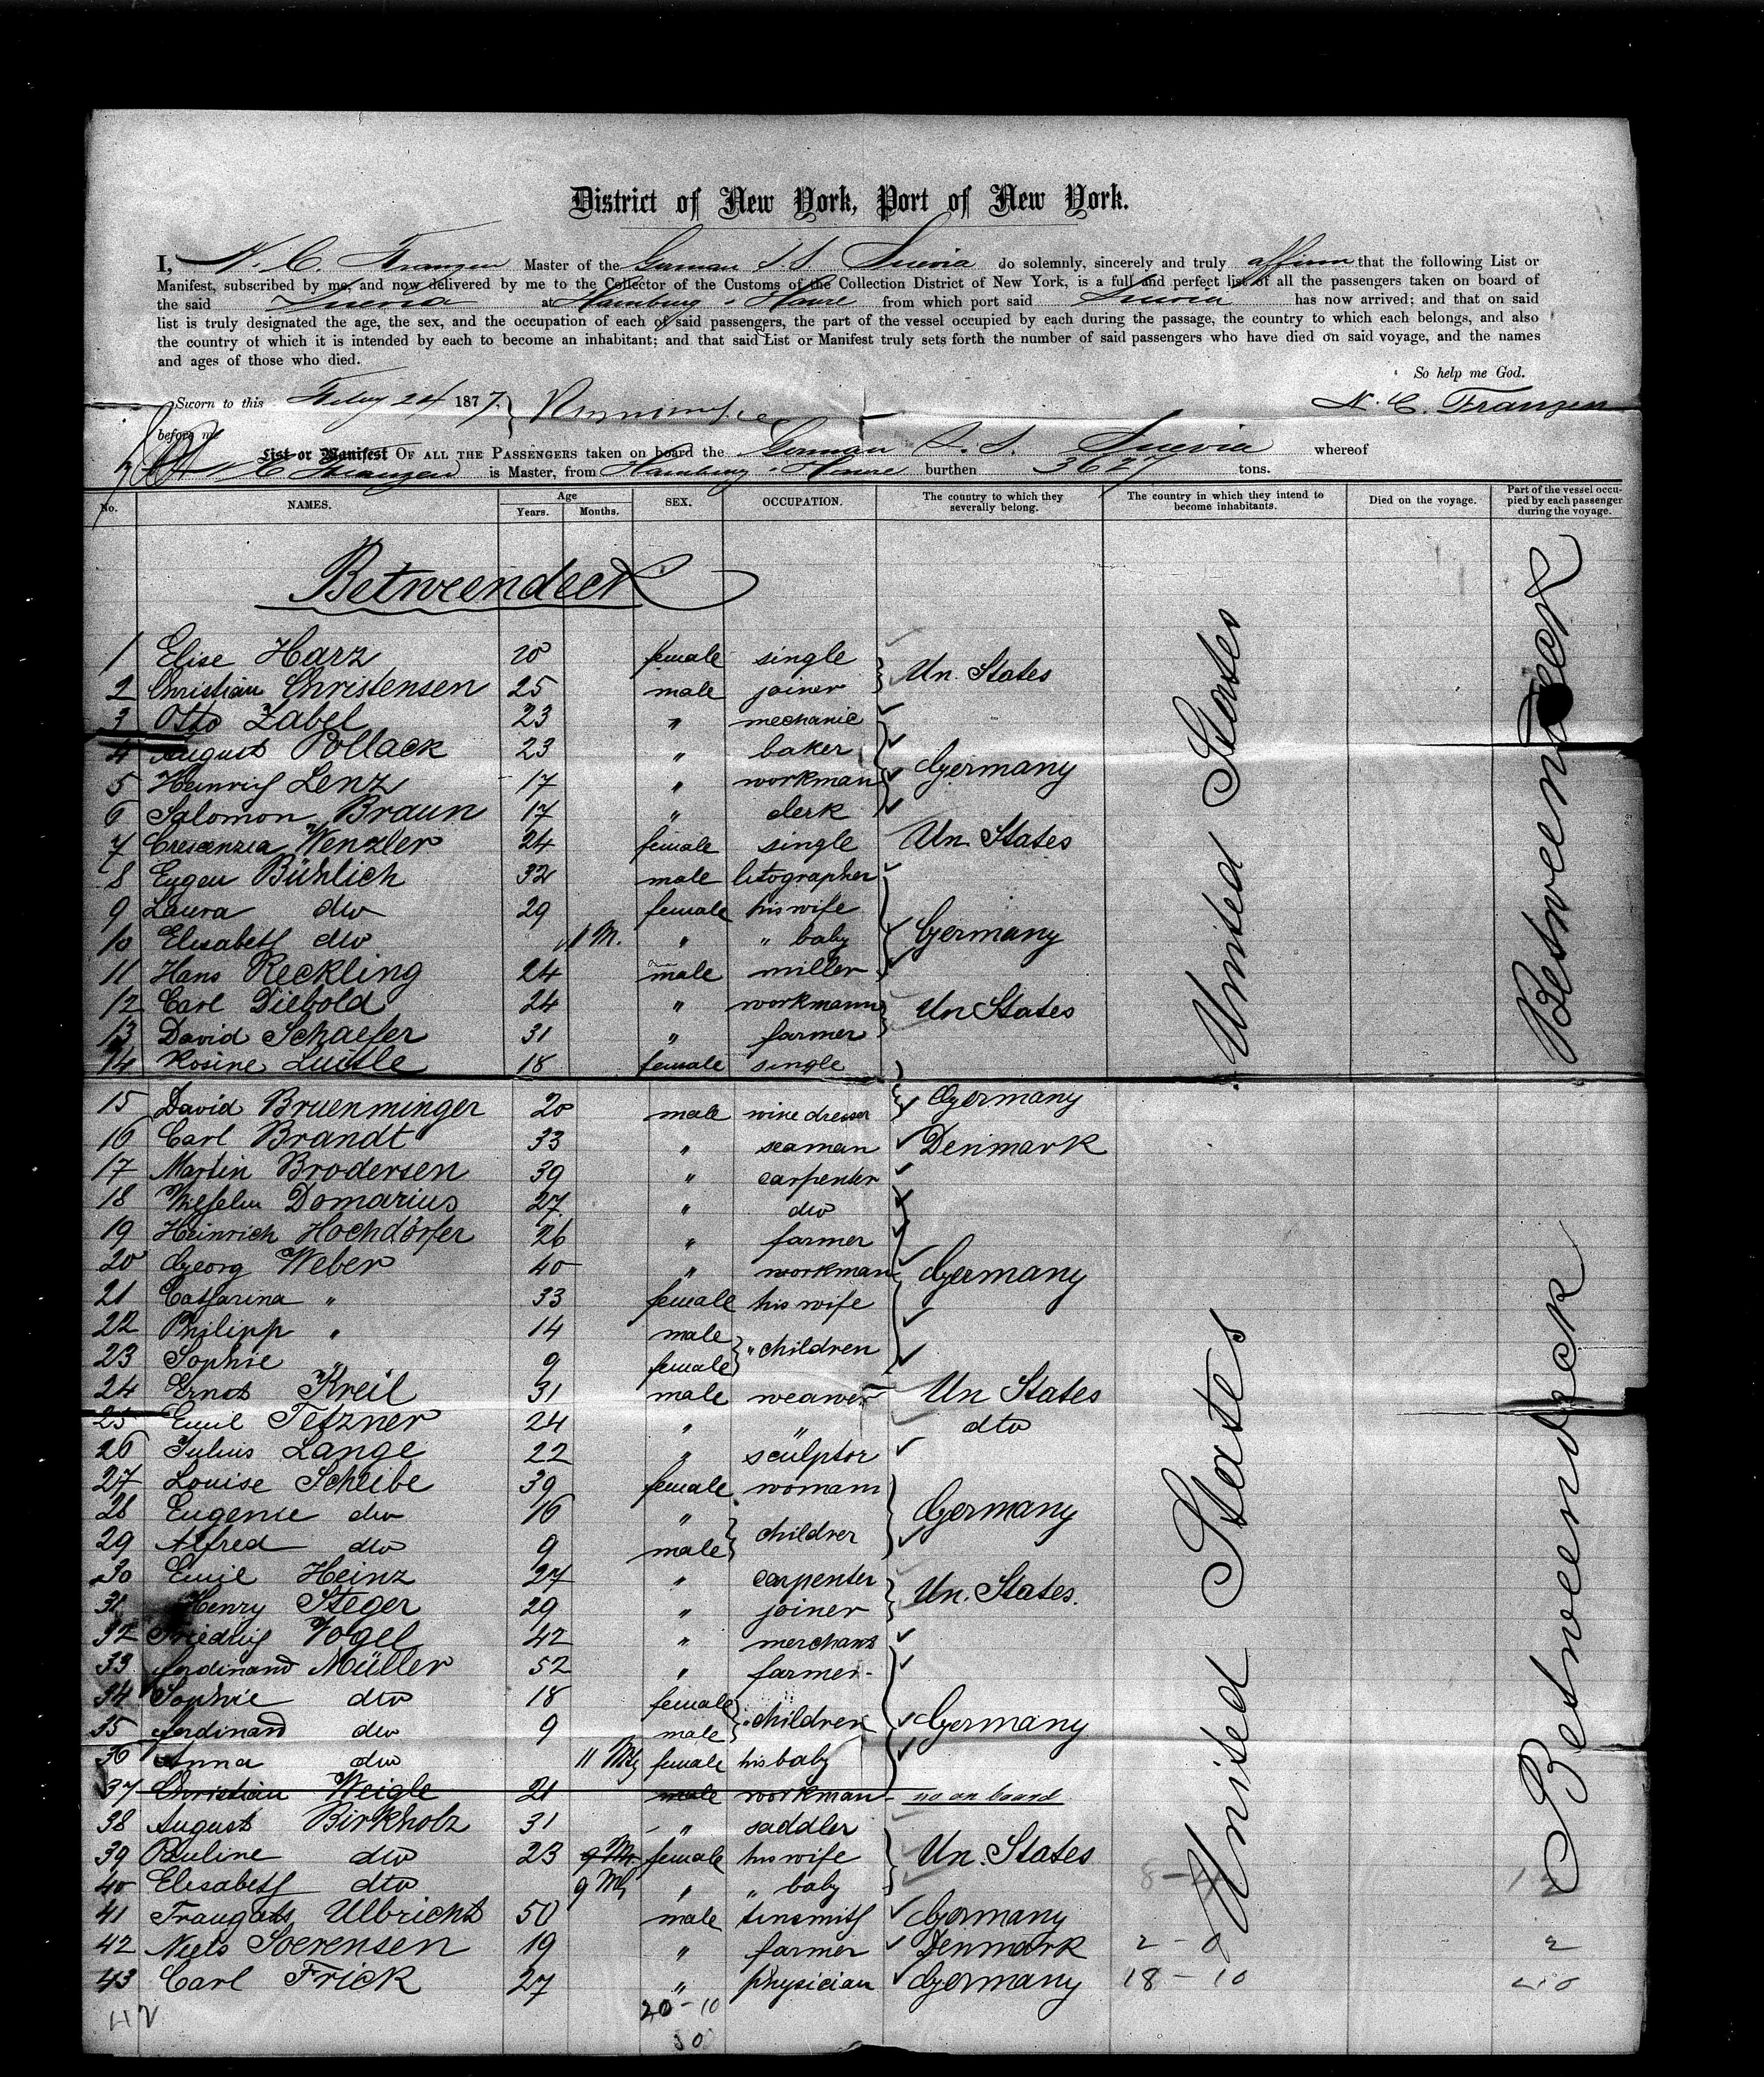 District of New York, Port of New York.
I, N. C. Franzen Master of the German S. S. Suevia do solemnly, sincerely and truly affirm that the following List or
Manifest, subscribed by me, and now delivered by me to the Collector of the Customs of the Collection District of New York, is a full and perfect list of all the passengers taken on board of
the said Suevia at Hamburg & Havre from which port said Suevia has now arrived; and that on said
list is truly designated the age, the sex, and the occupation of each of said passengers, the part of the vessel occupied by each during the passage, the country to which each belongs, and also
the country of which it is intended by each to become an inhabitant; and that said List or Manifest truly sets forth the number of said passengers who have died on said voyage, and the names
and ages of those who died.
So help me God.
Sworn to this Feby 24 1877. N. C. Franzen
before me
List or Manifest OF ALL THE PASSENGERS taken on board the German S. S. Suevia whereof
N. C. Franzen is Master, from Hamburg & Havre burthen 3627 tons.
No. NAMES. Age Years. Months. SEX. OCCUPATION. The country to which they severally belong. The country in which they intend to become inhabitants. Died on the voyage. Part of the vessel occupied by each passenger during the voyage.
Betweendeck
1 Elise Harz 20 female single
2 Christian Christensen 25 male joiner Un. States
3 Otto Zabel 23 " mechanic
4 August Pollack 23 " baker
5 Heinrich Lenz 17 " workman Germany
6 Salomon Braun 17 " clerk
7 Crescenzia Wenzler 24 female single Un States
8 Eugen Bühlich 32 male litographer
9 Laura dto 29 female his wife
10 Elisabeth dto 11 M. " " baby Germany
11 Hans Reckling 24 male miller
12 Carl Diebold 24 " workmann Un States
13 David Schaefer 31 " farmer
14 Rosine Luitle 18 female single
15 David Bruenminger 20 male wine dresser Germany
16 Carl Brandt 33 " seaman Denmark
17 Martin Brodersen 39 " carpenter
18 Wilhelm Domarius 27 " dto
19 Heinrich Hochdörfer 26 " farmer
20 Georg Weber 40 " workman Germany
21 Catharina " 33 female his wife
22 Philipp " 14 male " children
23 Sophie " 9 female
24 Ernst Kreil 31 male weawer Un States
25 Emil Tetzner 24 " " dto
26 Julius Lange 22 " sculptor
27 Louise Scheibe 39 female womann
28 Eugenie dto 16 " children Germany
29 Alfred dto 9 male
30 Emil Heinz 27 " carpenter Un. States.
31 Henry Steger 29 " joiner
32 Friedrich Vogel 42 " merchant
33 Ferdinand Müller 52 " farmer
34 Sophie dto 18 female " children
35 Ferdinand dto 9 male Germany
36 Anna dto 11 Mts female his baby
37 Christian Weigle 21 male workman no on board
38 August Birkholz 31 " saddler
39 Pauline dto 23 9 Mts female his wife Un. States
40 Elisabeth dto 9 Mts " " baby
41 Traugott Ulbricht 50 male tinsmith Germany
42 Niels Soerensen 19 " farmer Denmark 2 - 0 2
43 Carl Frick 27 " physician Germany 18 - 10
20 - 10
30
United States
United States
Betweendeck
Betweendeck